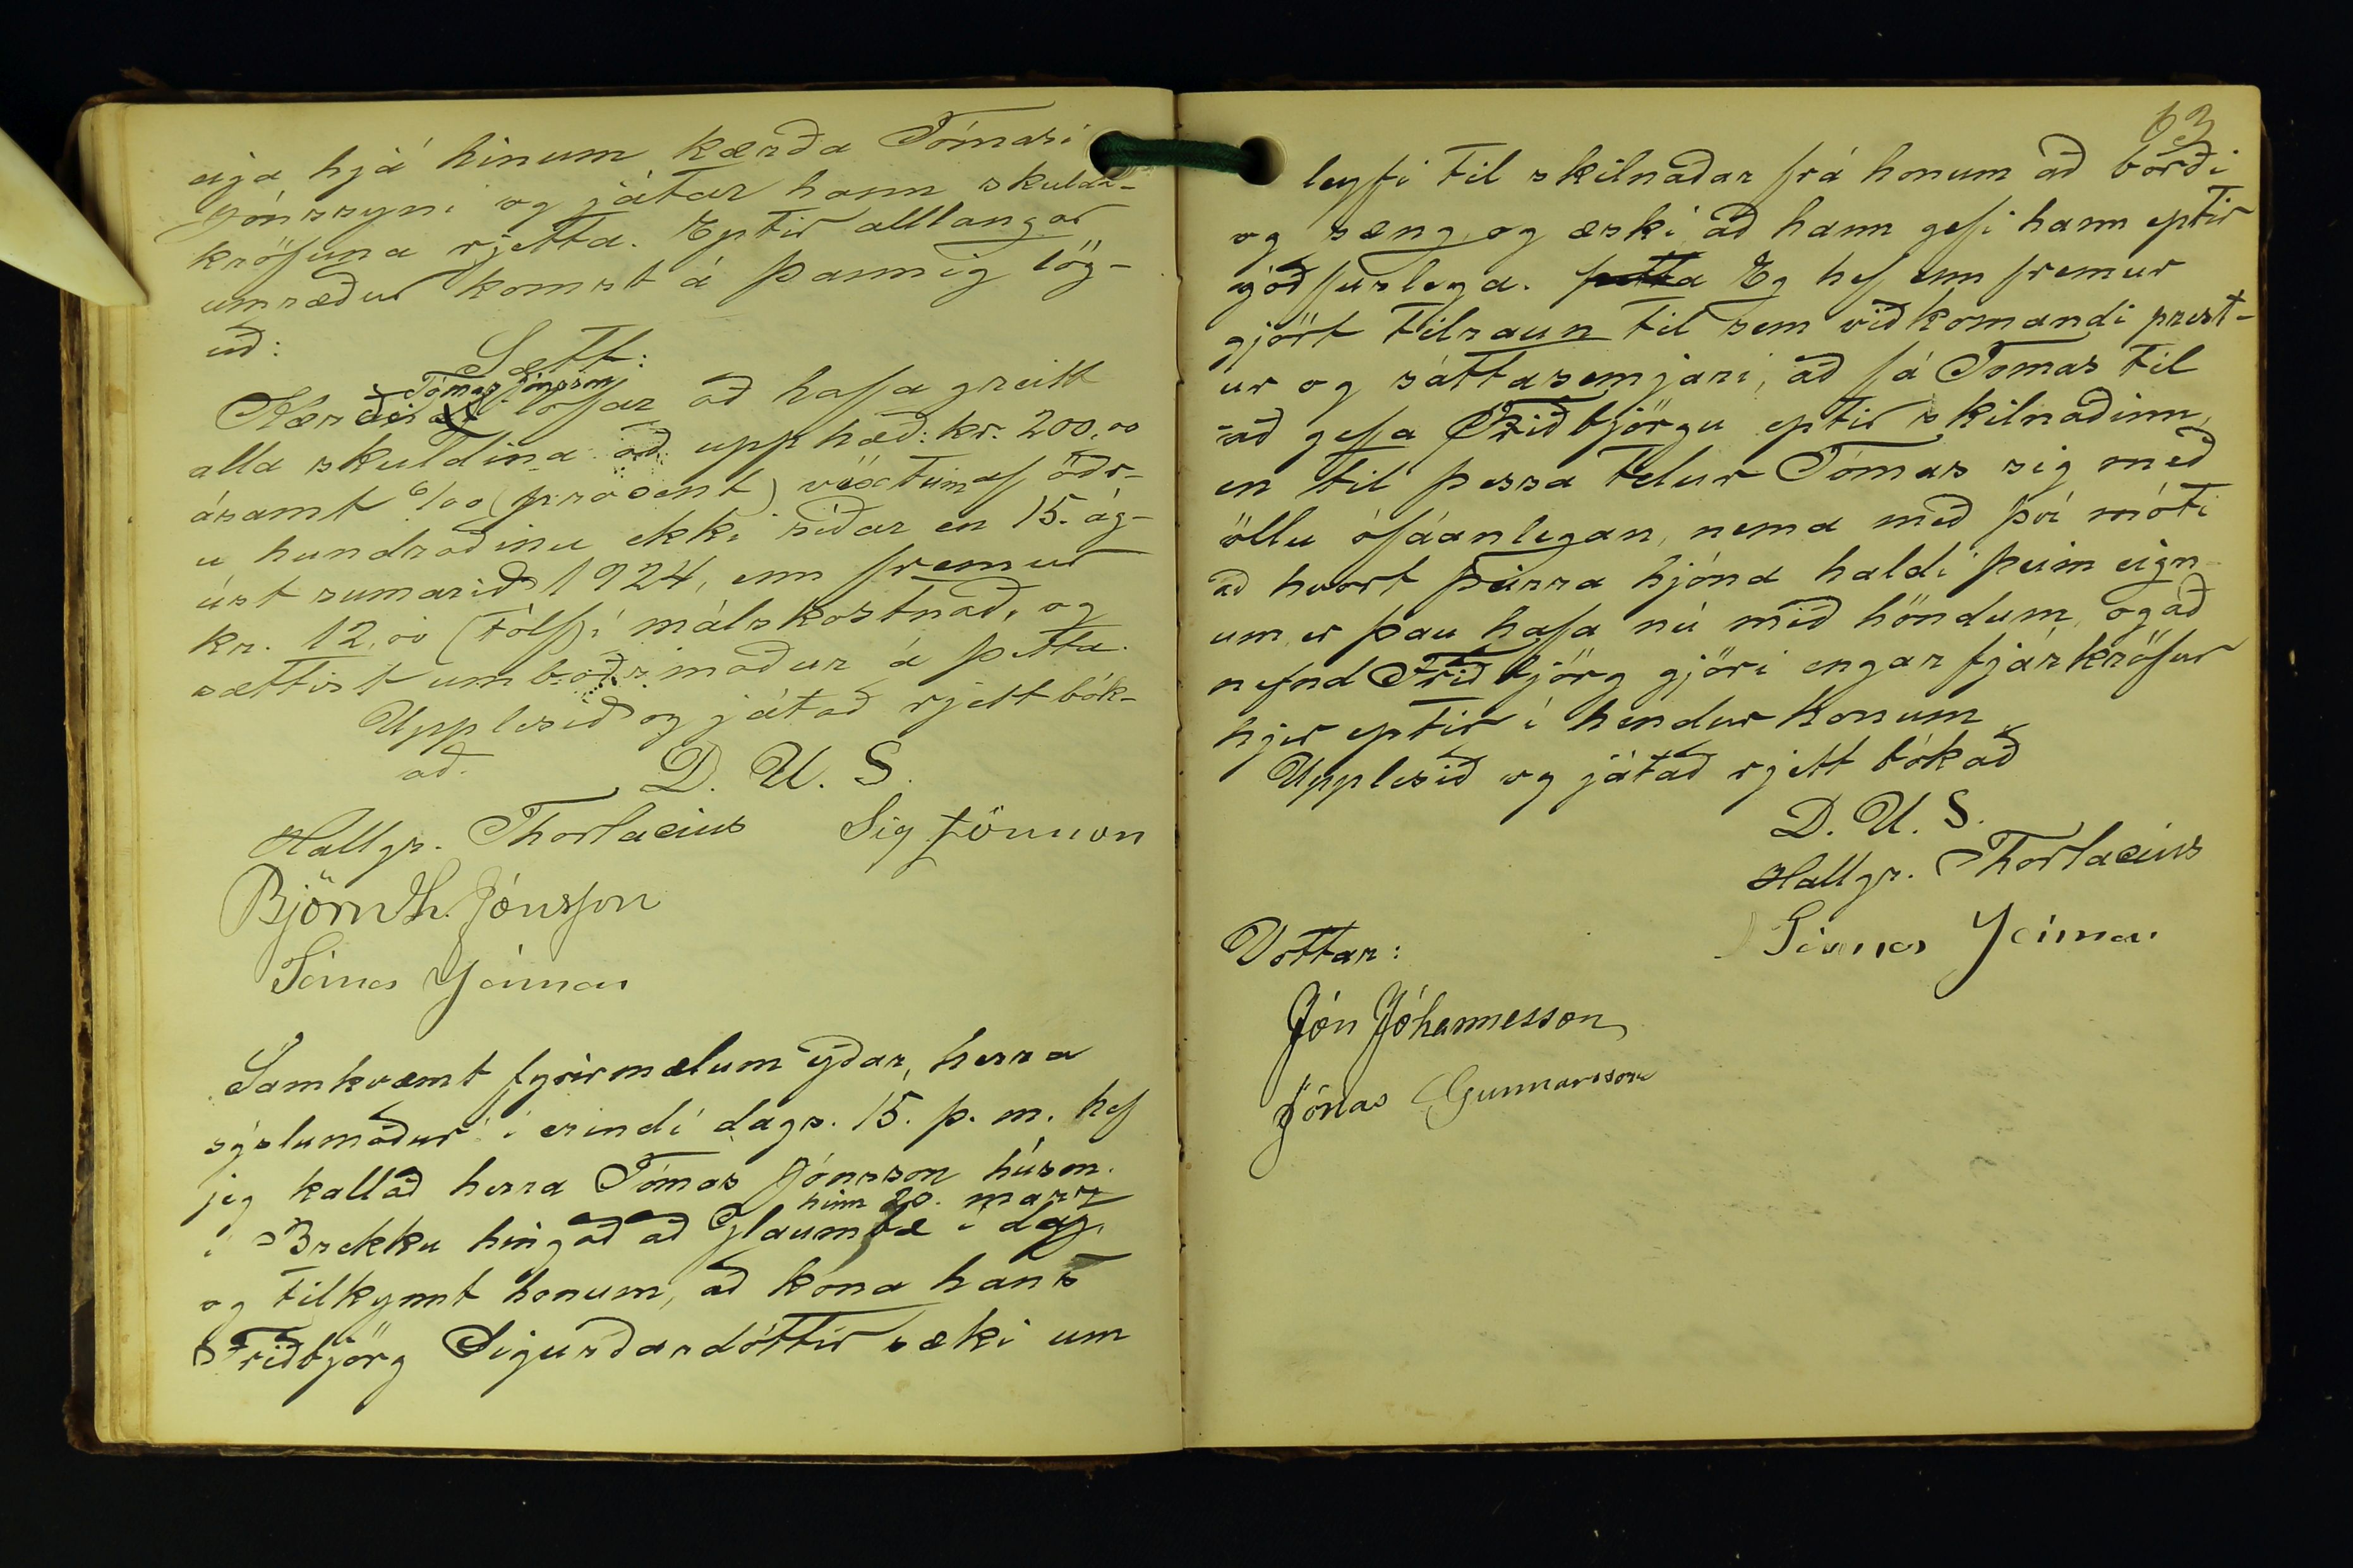 eiga hjá hinum kærða Tómasi
Jónssyni og játar hann skulda-
kröfuna rjetta. Eptir alllangar
umræður komst á þannig lög-
uð:
Sætt:
Tómas Jónsson
Kærði lofar að hafa greitt
alla skuldina að upphæð: kr. 200,00
ásamt 6/00 (prosent) vöxtum af öðr-
u hundraðinu ekki síðar en 15. ág-
úst sumarið 1924, enn fremur
kr. 12,00 (tólf) í málskostnað, og
sættist umboðsmaður á þetta.
Upplesið og játað rjett bók-
að.
D. U. S.
Hallgr. Thorlacius Sig Jónsson
Björn Th. Jónsson
Tómas Jónsson
Samkvæmt fyrirmælum yðar, herra
sýslumaður í erindi dags. 15. þ. m. hef
jeg kallað herra Tómas Jónsson húsm.
hinn 20. marz
í Brekku hingað að Glaumbæ í dag,
og tilkynnt honum, að kona hans
Friðbjörg Sigurðardóttir sæki um
63
leyfi til skilnaðar frá honum að borði
og sæng, og æski að hann gefi hann eptir
góðfúslega. þetta Eg hef enn fremur
gjört tilraun til sem viðkomandi prest-
ur og sáttasemjari, að fá Tómas til
að gefa Friðbjörgu eptir skilnaðinn,
en til þessa telur Tómas sig með
öllu ófáanlegan, nema með því móti
að hvort þeirra hjóna haldi þeim eign-
um er þau hafa nú með höndum, og að
nefnd Friðbjörg gjöri engar fjárkröfur
hjer eptir í hendur honum.
Upplesið og játað rjett bókað
D. U. S.
Hallgr. Thorlacius
Tómas Jónsson
Vottar:
Jón Jóhannesson
Jónas Gunnarsson